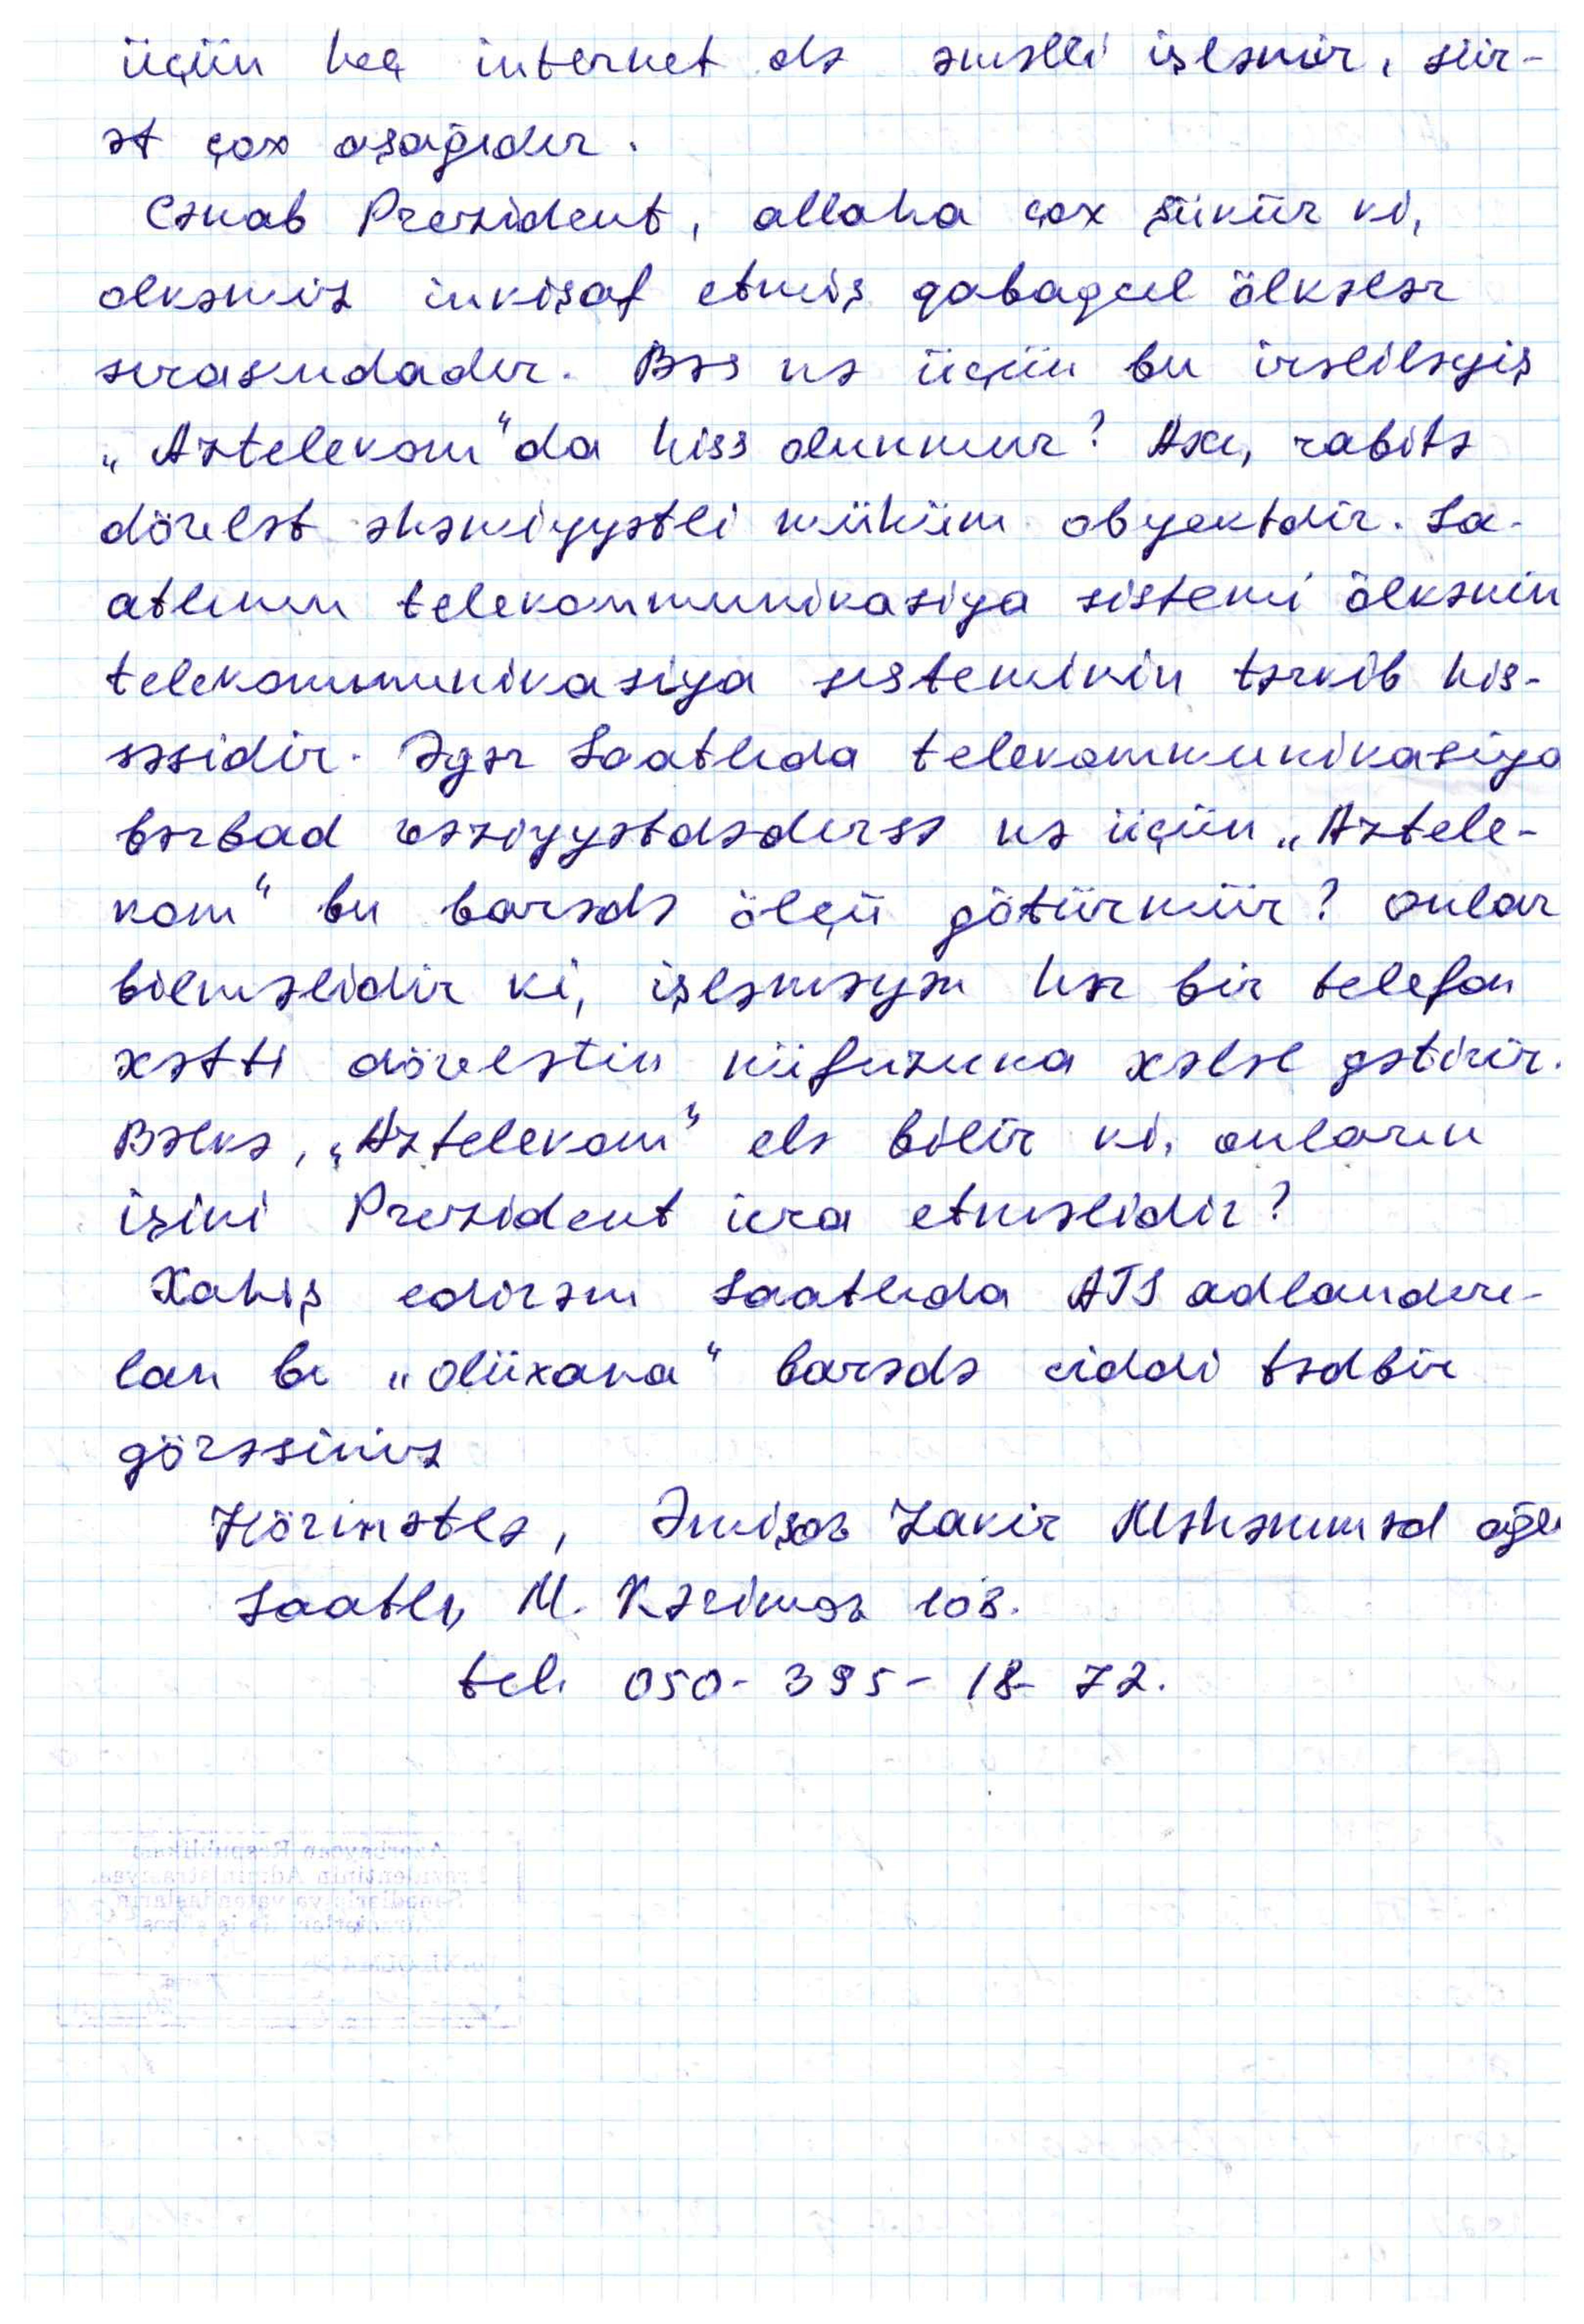 üçün heç internet də əməlli işləmir, sür-
ət çox aşağıdır.
Cənab Prezident, allaha çox şükür ki,
olkəmiz inkişaf etmiş qabaqcıl ölkələr
sırasındadır. Bəs nə üçün bu irəliləyiş
„Aztelekom“da hiss olunmur? Axı, rabitə
dövlət əhəmiyyətli mühüm obyektdir. Sa-
atlının telekommunikasiya sistemi ölkənin
telekommunikasiya sisteminin tərkib his-
səsidir. Əgər Saatlıda telekommunikasiya
bərbad vəziyyətdədirsə nə üçün „Aztele-
kom“ bu barədə ölçü götürmür? Onlar
bilməlidir ki, işləməyən hər bir telefon
xətti dövlətin nüfuzuna xələl gətirir.
Bəlkə, „Aztelekom“ elə bilir ki, onların
işini Prezident icra etməlidir?
Xahiş edirəm Saatlıda ATS adlandırı-
lan bu „ölüxana“ barədə ciddi tədbir
görəsiniz
Hörmətlə, Əmişov Zakir Məhəmməd oğlu
Saatlı, M. Kərimov 103.
tel. 050-395-18-72.
Azərbaycan Respublikası
Prezidentinin Administrasiyası